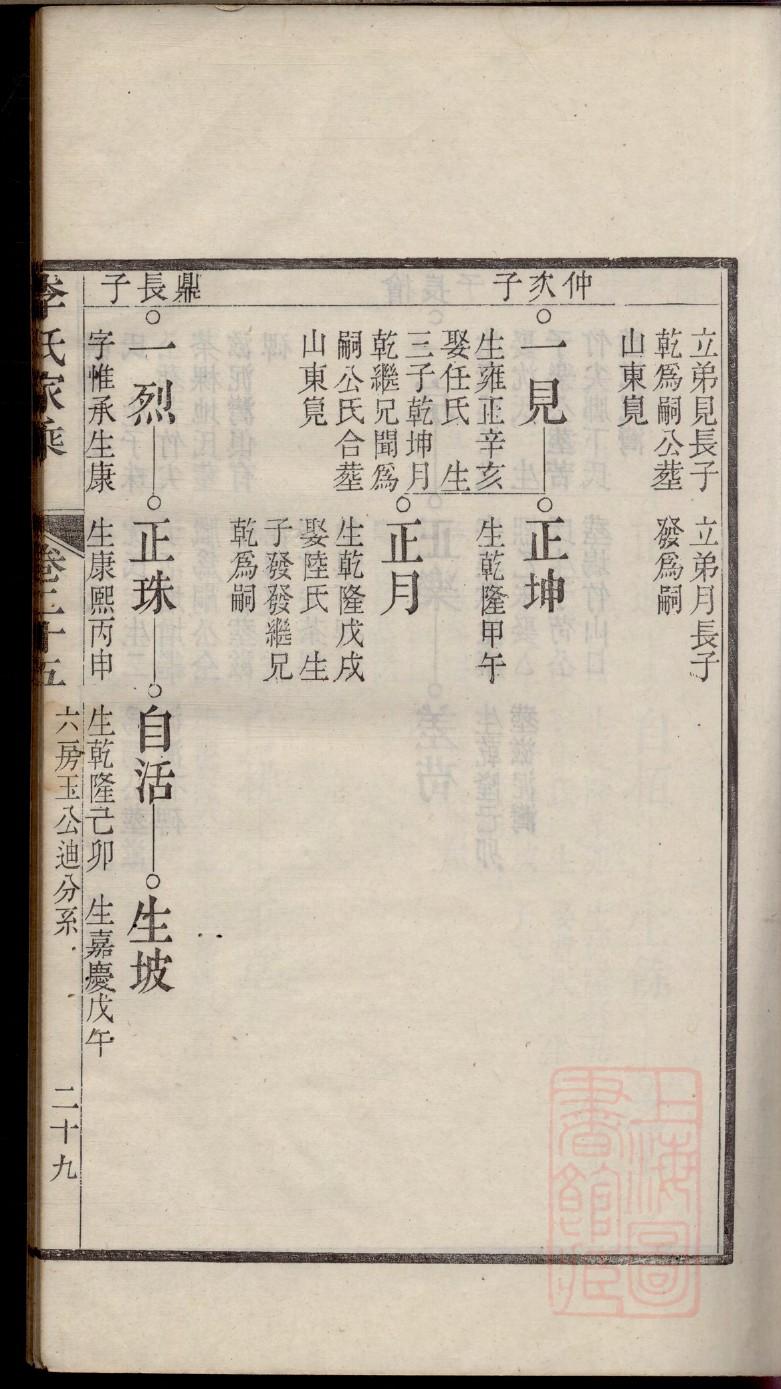 立弟見長子
乾爲嗣公塟
山東𡵺
立弟月長子
發爲嗣
仲次子
一見
生雍正辛亥
娶任氏　生
三子乾坤月
乾繼兄聞爲
嗣公氏合塟
山東𡵺
正坤
生乾隆甲午
正月
生乾隆戊戌
娶陸氏　生
子發發繼兄
乾爲嗣
鼎長子
一烈
字惟承生康
正珠
生康熙丙申
自活
生乾隆己卯
生坡
生嘉慶戊午
李氏家乘
卷三十五
六房玉公迪分系
二十九
上海圖
書館藏